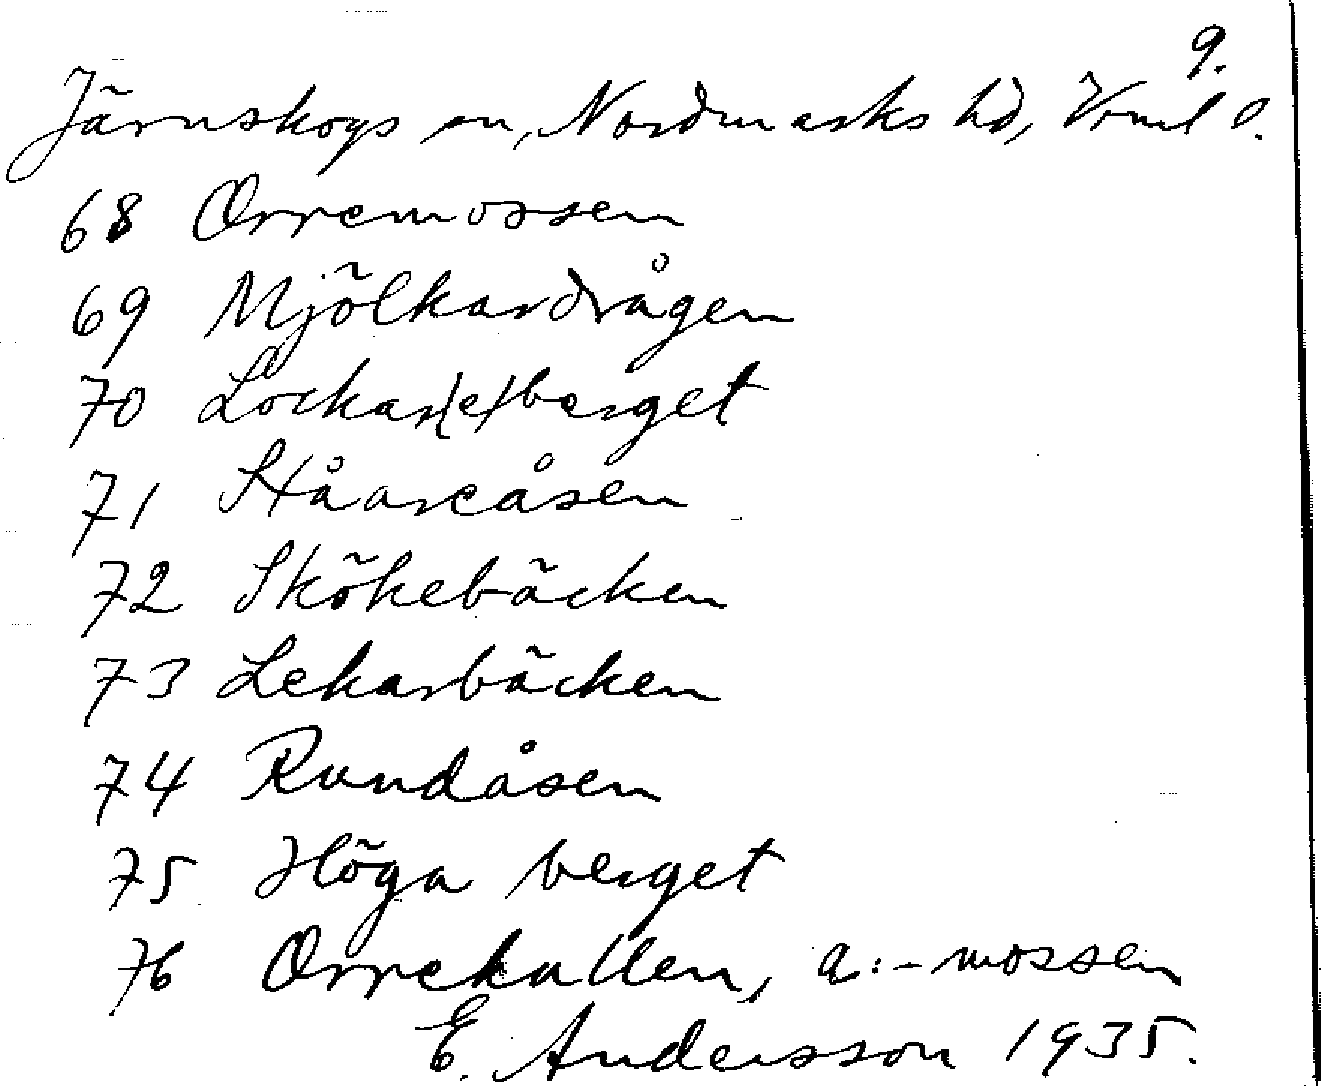 9.
Järnskogs sn, Nordmarks hd, Vrml
68 Orremossen
69 Mjölkardrågen
70 Lockar(e)berget
71 Ståareåsen
72 Skökebäcken
73 Lekarbäcken
74 Rundåsen
75 Höga berget
76 Orrekullen, a:-mossen
E. Andersson 1935.